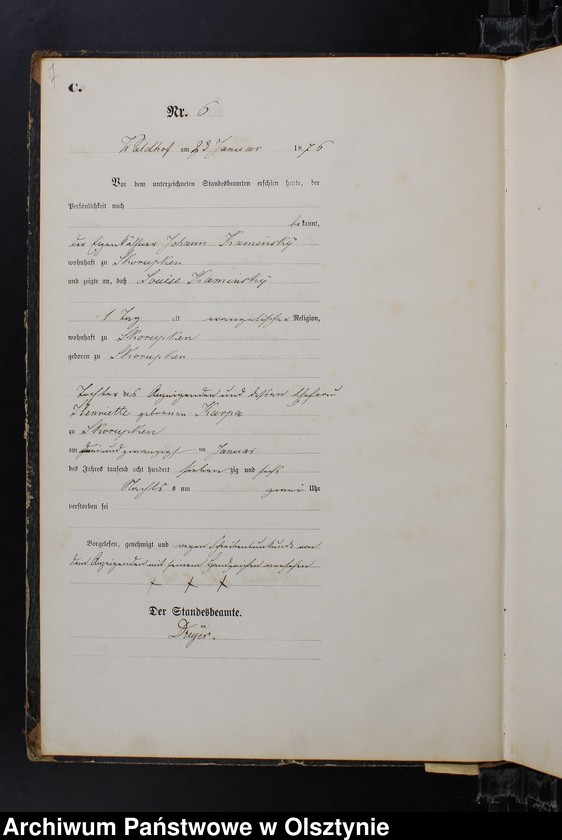 C.
Nr. 6
Waldhof am 23 Januar 1876
Vor dem unterzeichneten Standesbeamten erschien heute, der
Persönlichkeit nach
bekannt,
der Eigenkäthner Johann Kaminsky
wohnhaft zu Skorupken
und zeigte an, daß Louise Kaminsky
1 Tag alt evangelischer Religion,
wohnhaft zu Skorupken
geboren zu Skorupken
Tochter des Anzeigenden und dessen Ehefrau
Henriette geborenen Karpa
zu Skorupken
am dreiundzwanzigsten Januar
des Jahres tausend acht hundert siebenzig und sechs
Nachts um zwei Uhr
verstorben sei
Vorgelesen, genehmigt und wegen Schreibensunkunde von
dem Anzeigenden mit seinem Handzeichen versehen
+ + +
Der Standesbeamte.
Archiwum Państwowe w Olsztynie